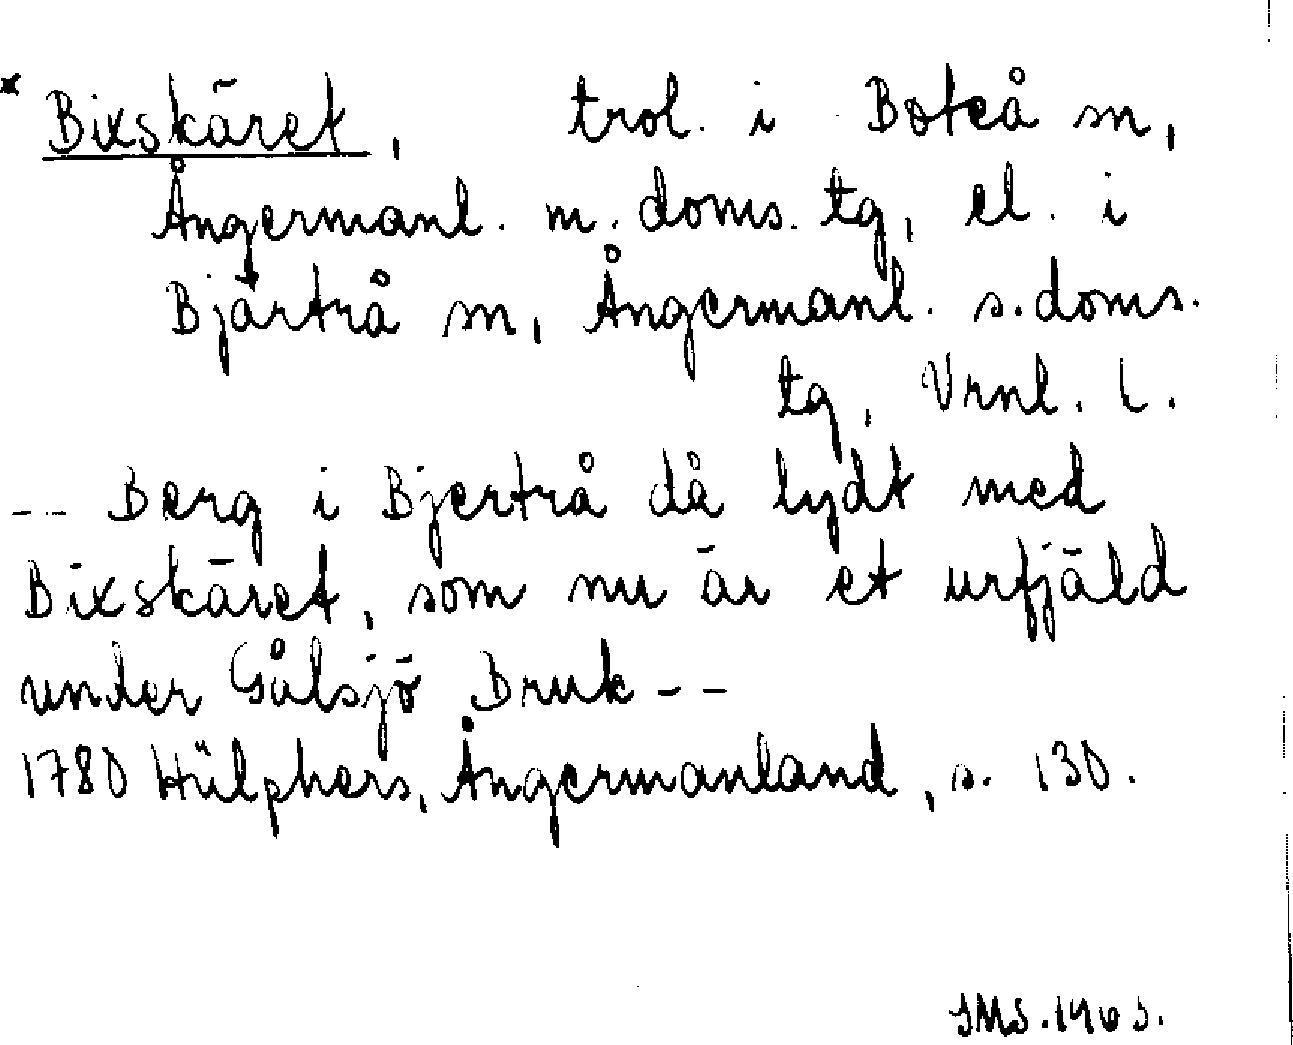 * Bixskäret, trol. i Boteå sn,
Ångermanl. m. doms. tg, el. i
Bjärtrå sn, Ångermanl. s. doms.
tg, Vrnl. l.
-- Berg i Bjertrå då lydt med
Bixskäret, som nu är et urfjäld
under Gålsjö Bruk --
1780 Hülphers, Ångermanland, s. 130.
SMS. 1963.